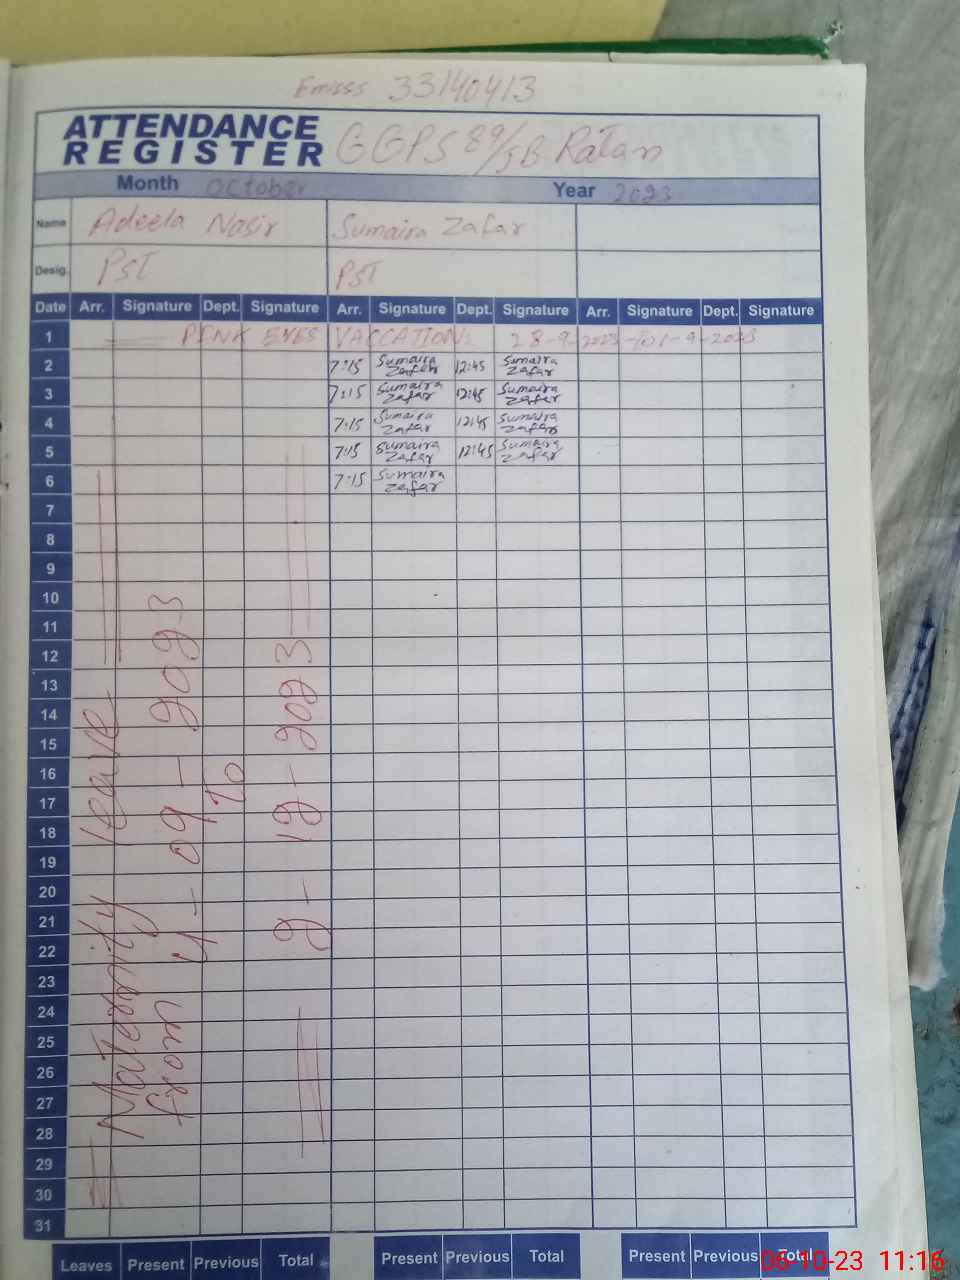 Emisss 33140413
ATTENDANCE
REGISTER GGPS 89/JB Ratan
Month October Year 2023
Name Adeela Nasir Sumaira Zafar
Desig. PST PST
Date Arr. Signature Dept. Signature Arr. Signature Dept. Signature Arr. Signature Dept. Signature
1 PINK EYES VACCATION: 28-9-2023 - to 1-9-2023
2 7:15 Sumaira Zafar 12:45 Sumaira Zafar
3 7:15 Sumaira Zafar 12:45 Sumaira Zafar
4 7:15 Sumaira Zafar 12:45 Sumaira Zafar
5 7:15 Sumaira Zafar 12:45 Sumaira Zafar
6 7:15 Sumaira Zafar
7
8
9
10
11
12
13
14
15
16
17
18
19
20
21
22
23
24
25
26
27
28
29
30
31
Maternity leave
from 4-09-2023
to
2-12-2023
Leaves Present Previous Total Present Previous Total Present Previous Total
06-10-23 11:16